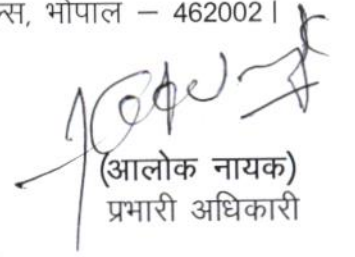 न्स, भोपाल – 462002।
(आलोक नायक)
प्रभारी अधिकारी